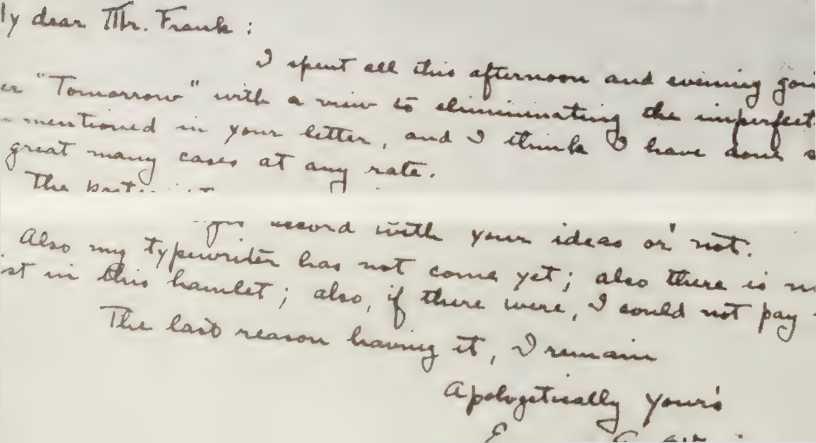 My dear Mr. Frank:
I spent all this afternoon and evening goi
er "Tomorrow" with a view to eliminating the imperfect
mentioned in your letter, and I think I have done s
great many cases at any rate.
The
accord with your ideas or not.
Also my typewriter has not come yet; also there is n
ist in this hamlet; also, if there were, I could not pay
The last reason having it, I remain
Apologetically yours